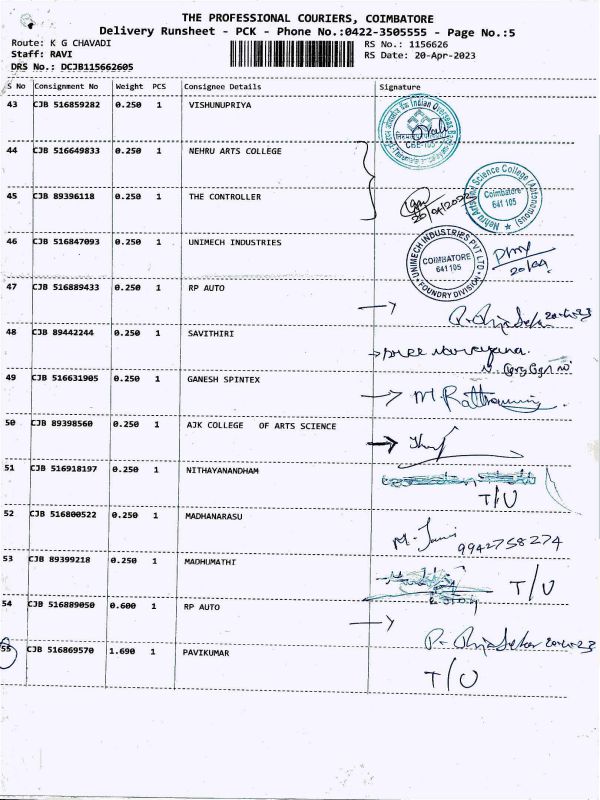 THE PROFESSIONAL COURIERS, COIMBATORE
Delivery Runsheet - PCK - Phone No.:0422-3505555 - Page No.:5
Route: K G CHAVADI RS No.: 1156626
Staff: RAVI RS Date: 20-Apr-2023
DRS No.: DCJB115662605
S No Consignment No Weight PCS Consignee Details Signature
43 CJB 516859282 0.250 1 VISHUNUPRIYA
Indian Overseas
44 CJB 516649833 0.250 1 NEHRU ARTS COLLEGE
Nehru Arts and Science College (Autonomous)
Coimbatore
641 105
45 CJB 89396118 0.250 1 THE CONTROLLER
46 CJB 516847093 0.250 1 UNIMECH INDUSTRIES
UNIMECH INDUSTRIES PVT LTD
COIMBATORE
641 105
FOUNDRY DIVISION
47 CJB 516889433 0.250 1 RP AUTO
48 CJB 89442244 0.250 1 SAVITHIRI
49 CJB 516631905 0.250 1 GANESH SPINTEX
50 CJB 89398560 0.250 1 AJK COLLEGE OF ARTS SCIENCE
51 CJB 516918197 0.250 1 NITHAYANANDHAM
T/U
52 CJB 516800522 0.250 1 MADHANARASU
9942758274
53 CJB 89399218 0.250 1 MADHUMATHI T/U
54 CJB 516889050 0.600 1 RP AUTO
55 CJB 516869570 1.690 1 PAVIKUMAR
T/U